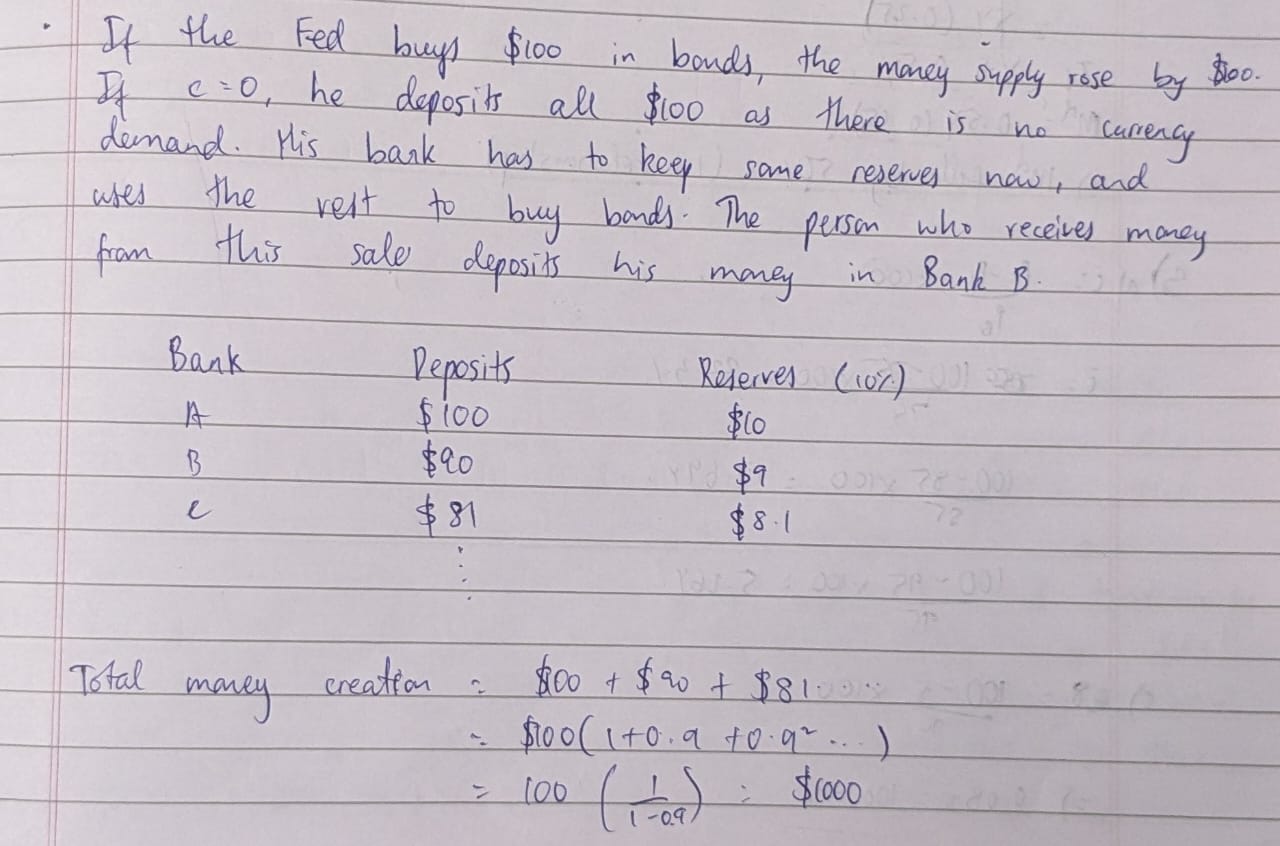 · If the Fed buys $100 in bonds, the money supply rose by $100.
If c=0, he deposits all $100 as there is no currency
demand. His bank has to keep some reserves now, and
uses the rest to buy bonds. The person who receives money
from this sale deposits his money in Bank B.
Bank Deposits Reserves (10%)
A $100 $10
B $90 $9
C $81 $8.1
⋮
Total money creation = $100 + $90 + $81 ...
= $100(1+0.9+0.9² ...)
= 100 (1/(1-0.9)) = $1000